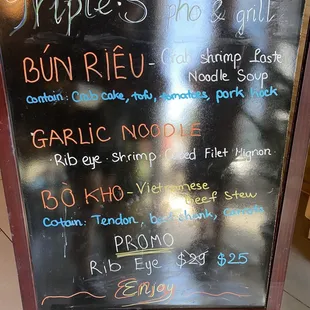 Triple S pho & grill
BÚN RIÊU - Crab shrimp Paste
Noodle Soup
Contain: Crab cake, tofu, tomatoes, pork Hock
GARLIC NOODLE
• Rib eye • Shrimp Filet Mignon
BÒ KHO - Vietnamese
Beef Stew
Cotain: Tendon, beef shank,
PROMO
Rib Eye $29 $25
Enjoy